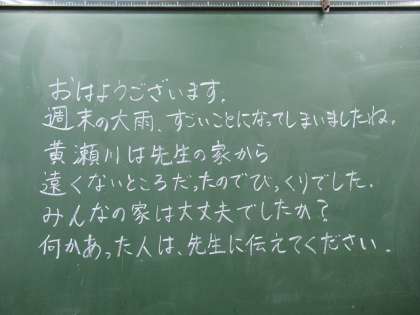 おはようございます。
週末の大雨、すごいことになってしまいましたね。
黄瀬川は先生の家から
遠くないところだったのでびっくりでした.
みんなの家は大丈夫でしたか？
何かあった人は、先生に伝えてください.